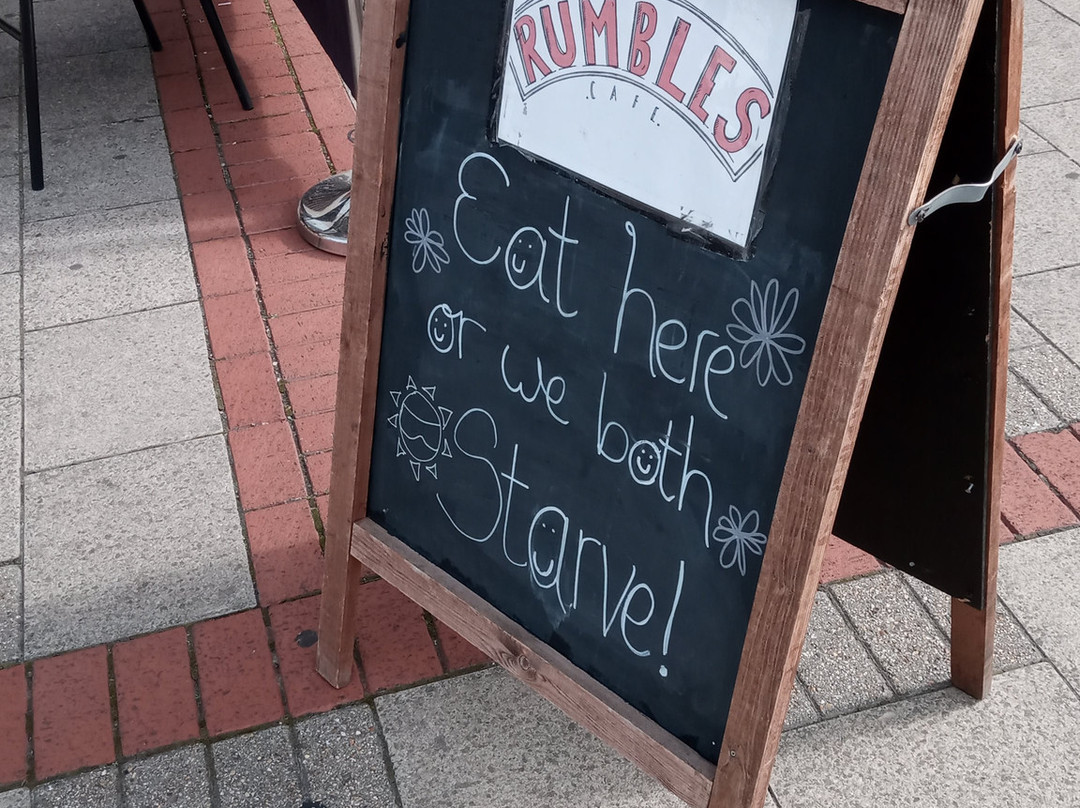 RUMBLES
.CAFE.
Eat here
or we both
Starve!